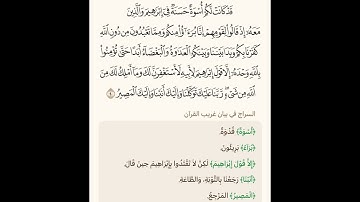 قَدْ كَانَتْ لَكُمْ أُسْوَةٌ حَسَنَةٌ فِي إِبْرَاهِيمَ وَالَّذِينَ
مَعَهُ إِذْ قَالُوا لِقَوْمِهِمْ إِنَّا بُرَءَاؤُا مِنكُمْ وَمِمَّا تَعْبُدُونَ مِن دُونِ اللَّهِ
كَفَرْنَا بِكُمْ وَبَدَا بَيْنَنَا وَبَيْنَكُمُ الْعَدَاوَةُ وَالْبَغْضَاءُ أَبَدًا حَتَّى تُؤْمِنُوا
بِاللَّهِ وَحْدَهُ إِلَّا قَوْلَ إِبْرَاهِيمَ لِأَبِيهِ لَأَسْتَغْفِرَنَّ لَكَ وَمَا أَمْلِكُ لَكَ مِنَ
اللَّهِ مِن شَيْءٍ رَّبَّنَا عَلَيْكَ تَوَكَّلْنَا وَإِلَيْكَ أَنَبْنَا وَإِلَيْكَ الْمَصِيرُ ٤
السراج في بيان غريب القرآن
﴿أُسْوَةٌ﴾ قُدْوَةٌ.
﴿بُرَآءُ﴾ بَرِيئُونَ.
﴿إِلَّا قَوْلَ إِبْرَاهِيمَ﴾ لَكِنْ لَا تَقْتَدُوا بِإِبْرَاهِيمَ حِينَ قَالَ.
﴿أَنَبْنَا﴾ رَجَعْنَا بِالتَّوْبَةِ، وَالطَّاعَةِ.
﴿الْمَصِيرُ﴾ الْمَرْجِعُ.